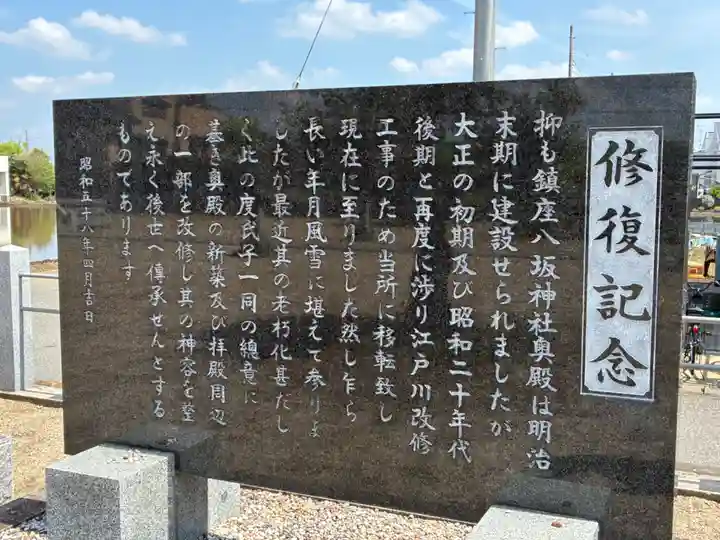 修復記念
抑も鎮座八坂神社奥殿は明治
末期に建設せられましたが
大正の初期及び昭和二十年代
後期と再度に渉り江戸川改修
工事のため当所に移転致し
現在に至りました然し乍ら
長い年月風雪に堪えて参りま
したが最近其の老朽化甚だし
く此の度氏子一同の總意に
基き奥殿の新築及び拝殿周辺
の一部を改修し其の神容を整
え永く後世へ傳承せんとする
ものであります
昭和五十八年四月吉日